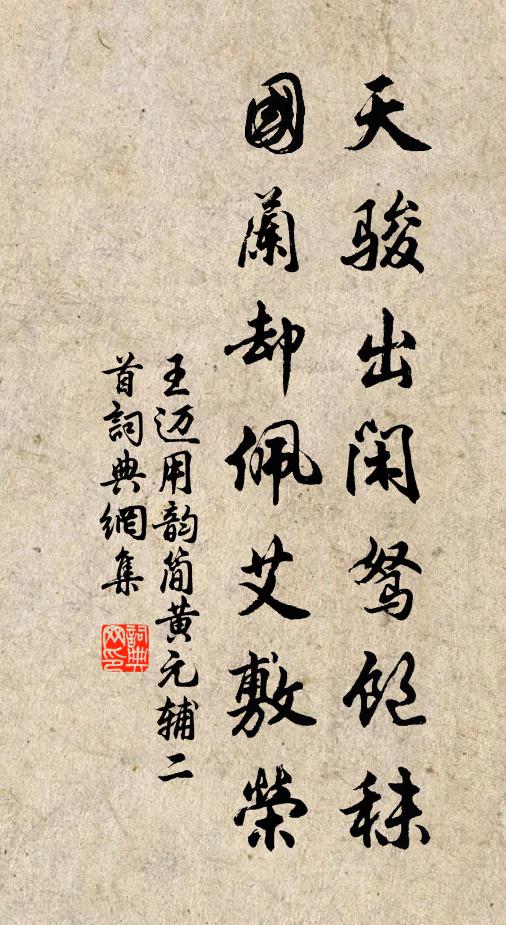 天骏出闲驽饱秣
國蘭却佩艾敷榮
王迈用韵简黄元辅二
首詞典網集
詞典
网印